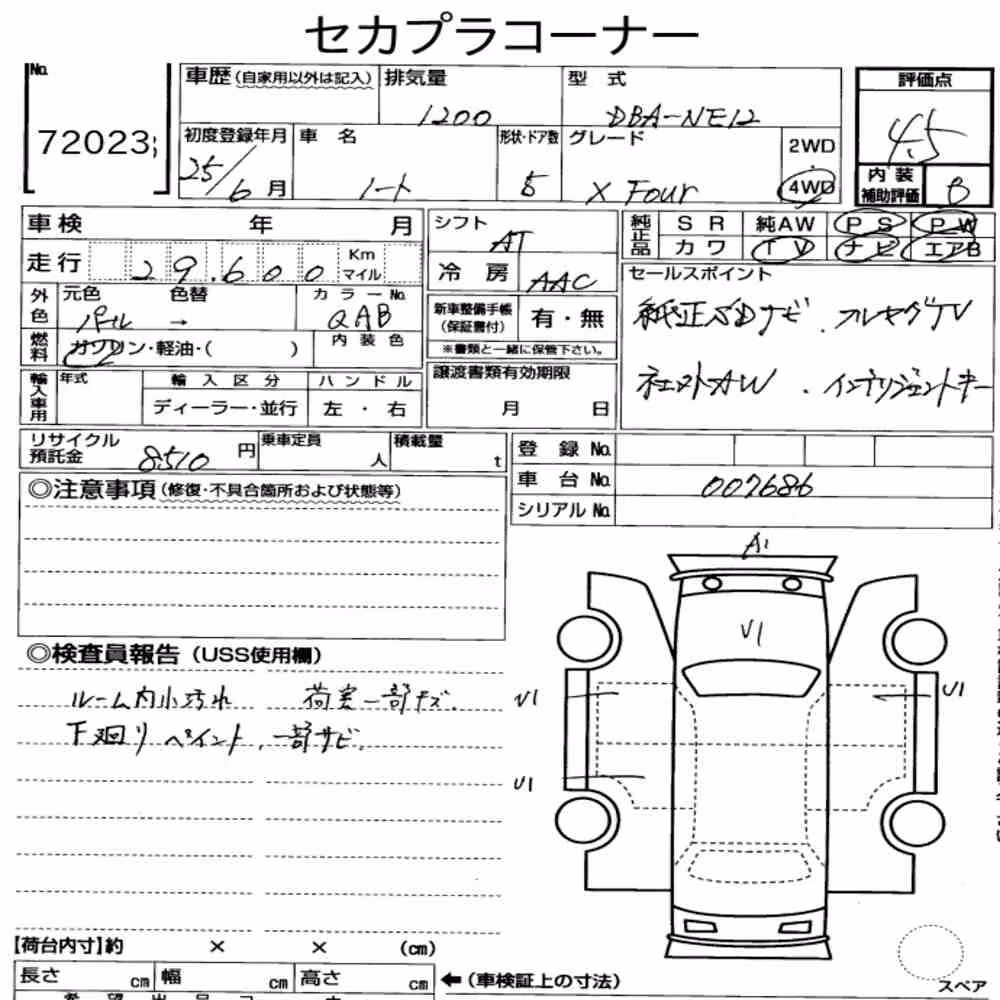 セカプラコーナー
No.
72023
車歴(自家用以外は記入) 排気量 型式 評価点
1200 DBA-NE12 4.5
初度登録年月 車名 形状・ドア数 グレード 2WD
25/6月 ノート 5 X Four 4WD
内装補助評価 B
車検 年 月 シフト AT 純正品 SR 純AW PS PW
カワ TV ナビ エアB
走行 29,600 Km マイル 冷房 AAC
セールスポイント
外色 元色 色替 カラーNo. 新車整備手帳(保証書付) 有・無
パール → QAB
純正SDナビ.フルセグTV
燃料 ガソリン・軽油・( ) 内装色 ※書類と一緒に保管下さい。
輸入車用 年式 輸入区分 ハンドル 譲渡書類有効期限
ディーラー・並行 左・右 月 日
AW.インテリジェントキー
リサイクル預託金 8510円 乗車定員 人 積載量 t
登録No.
車台No. 007686
シリアルNo.
◎注意事項(修復・不具合箇所および状態等)
A1
U1
◎検査員報告(USS使用欄)
ルーム内小汚れ 荷室一部キズ.
下廻りペイント.一部サビ.
U1 U1
U1
【荷台内寸】約 × × (cm)
長さ cm 幅 cm 高さ cm ←(車検証上の寸法)
スペア